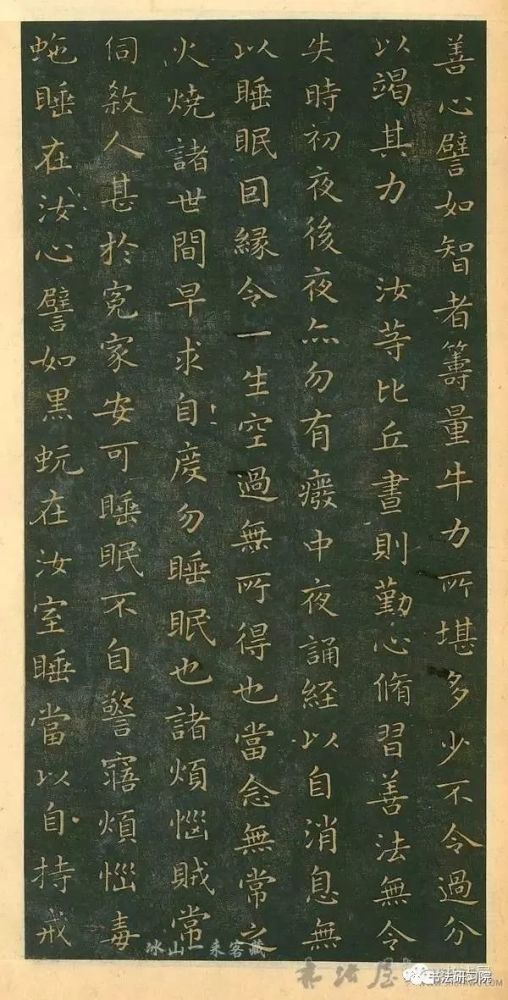 善心譬如智者籌量牛力所堪多少不令過分
以竭其力　汝等比丘晝則勤心脩習善法無令
失時初夜後夜亦勿有癈中夜誦経以自消息無
以睡眠因緣令一生空過無所得也當念無常之
火燒諸世間早求自度勿睡眠也諸煩惱賊常
伺敘人甚於冤家安可睡眠不自警寤煩惱毒
虵睡在汝心譬如黒蚖在汝室睡當以自持戒
冰山 来客藏
书法研习院